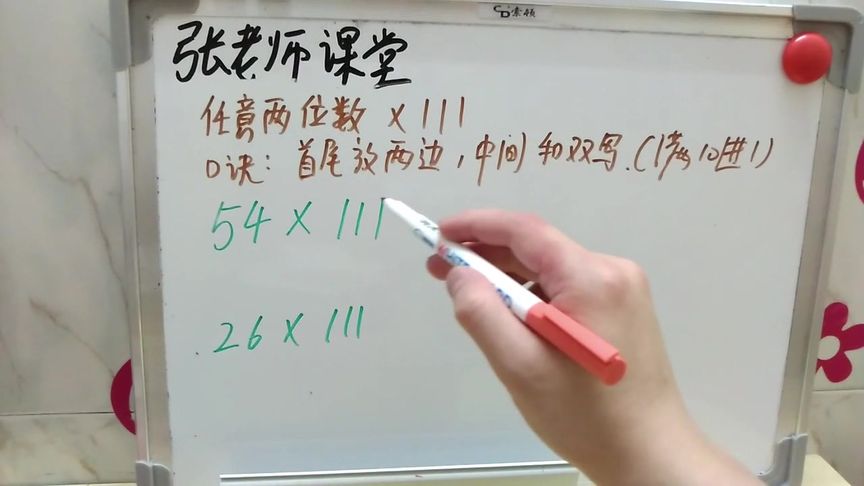 CD索顿
张老师课堂
任意两位数 × 111
口诀: 首尾放两边,中间和双写.(满10进1)
54 × 111
26 × 111